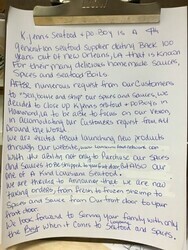 Kjenns Seafood + po-Boy is A 4th
generation seafood supplier dating Back 100
years out of New Orleans, LA that is known
For their many delicious homemade sauces,
spices and seafood Boils.
After numerous request from our customers
to ship our spices and sauces, we
decided to close up Kjenns seafood + po-Boys in
Hammond, LA to be able to focus on our
in accomodating our customers request from All
Around the World.
We are excited About launching new products
through our website,
With the ability not only to Purchase our Spices
and Sauces to be shipped to your
one of A Kind Louisiana seafood.
we are thrilled to Announce that we are now
taking orders from fresh to frozen shrimp to
spices and sauce from our front door to your
front door!
We look forward to serving your family with only
the Best when it comes to seafood and spices.